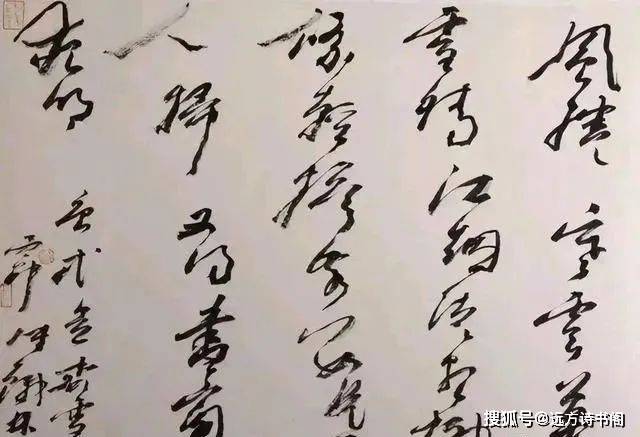 風捲寒雲暮
雪晴江烟洗盡柳
條輕檐前數片
人掃又得書窗
夜明
搜狐号@远方诗书阁